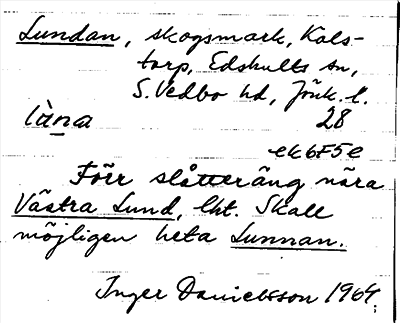 Lundan, skogsmark, Kols-
torp, Edshults sn,
S. Vedbo hd, Jönk. l.
làna 28
ek6F5e
Förr slåtteräng nära
Västra Lund, lht. Skall
möjligen heta Lunnan.
Inger Danielsson 1964.